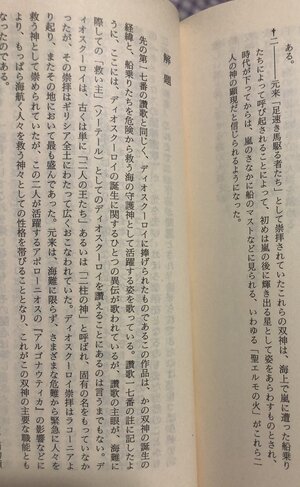 †二一 元来「足速き馬駆る者たち」として崇拝されていたこれらの双神は、海上で嵐に遭った船乗り
たちによって呼び起こされることによって、初めは嵐の後に輝き出る星として姿をあらわすものとされ、
時代が下ってからは、嵐のさなかに船のマストなどに見られる、いわゆる「聖エルモの火」がこれら二
人の神の顕現だと信じられるようになった。
解題
先の第一七番の讃歌と同じく、ディオスクーロイに捧げられたものであるこの作品は、かの双神の誕生の
経緯と、船乗りたちを危険から救う海の守護神として活躍する姿を歌っている。讃歌一七番の註に記したよ
うに、ここには、ディオスクーロイの誕生に関するひとつの異伝が歌われているが、讃歌の主眼が、海難に
際しての「救い主」(ソーテール)としてのディオスクーロイを讃えることにあるのは言うまでもない。デ
ィオスクーロイは、古くは単に「二人の王たち」あるいは「二柱の神」と呼ばれ、固有の名をもっていなか
ったが、その崇拝はギリシア全土にわたって広くおこなわれていた。ディオスクーロイ崇拝はラコーニアよ
り起り、またその地において最も盛んであった。元来は、海難に限らず、さまざまな危難から緊急に人々を
救う神として崇められていたが、この二人が活躍するアポローニオスの『アルゴナウティカ』の影響などに
より、もっぱら海航く人々を救う神々としての性格を帯びることとなり、これがこの双神の主要な職能とも
なったのである。